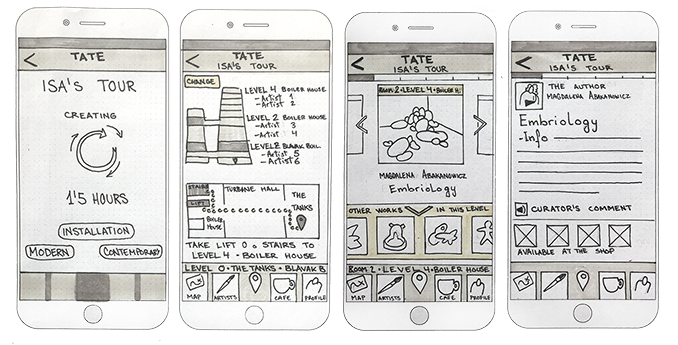 TATE
ISA'S TOUR
CREATING
1'5 HOURS
INSTALLATION
MODERN
CONTEMPORARY
TATE
ISA'S TOUR
CHANGE
LEVEL 4 BOILER HOUSE
-Artist 1
-Artist 2
LEVEL 2 BOILER HOUSE
-Artist 3
-Artist 4
-Artist 5
-Artist 6
STAIRS
LIFT
TURBANE HALL
THE
TANKS
BOILER
HOUSE
TAKE LIFT O o STAIRS TO
LEVEL 4 - BOILER HOUSE
LEVEL 0 • THE TANKS • BLAVAK B
MAP
ARTISTS
CAFE
PROFILE
TATE
ISA'S TOUR
ROOM 2 • LEVEL 4 • BOILER H.
MAGDALENA ABAKANOWICZ
Embriology
OTHER WORKS
IN THIS LEVEL
ROOM 2 • LEVEL 4 • BOILER HOUSE
MAP
ARTISTS
CAFE
PROFILE
TATE
ISA'S TOUR
THE AUTHOR
MAGDALENA ABAKANOWICZ
Embriology
-Info
CURATOR'S COMMENT
AVAILABLE AT THE SHOP